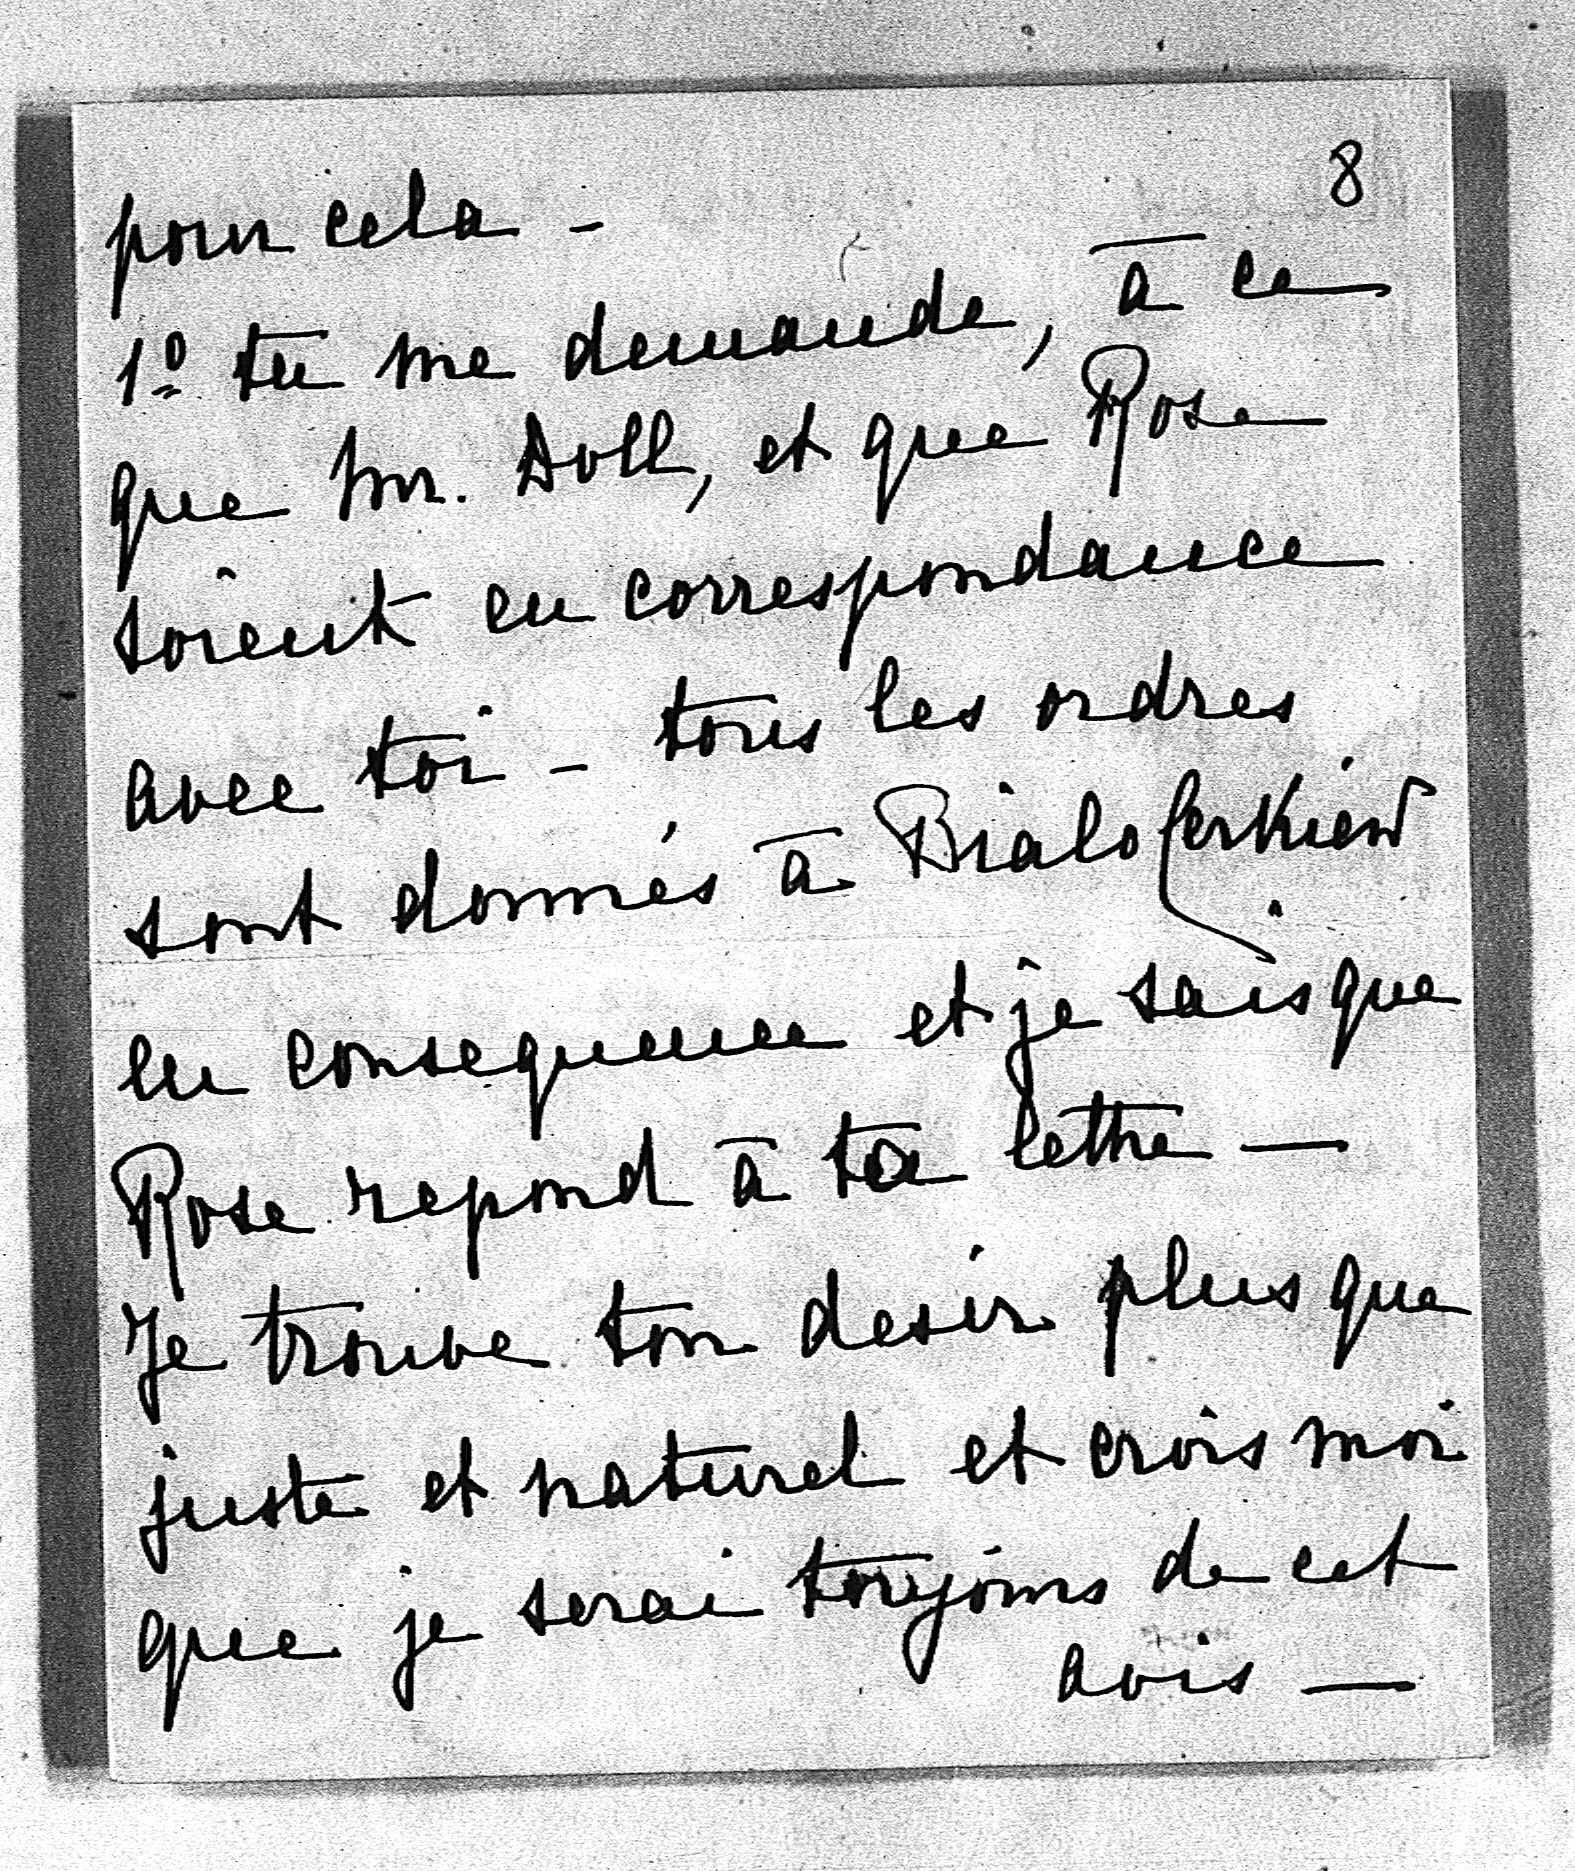 8
pour cela -
1º tu me demande, à ce
que Mr. Doll, et que Rose
soient en correspondance
avec toi - tous les ordres
sont donnés à Bialo Cerkiew
en consequence et je sais que
Rose repond à ta lettre —
Je trouve ton desir plus que
juste et naturel et crois moi
que je serai toujours de cet
avis —